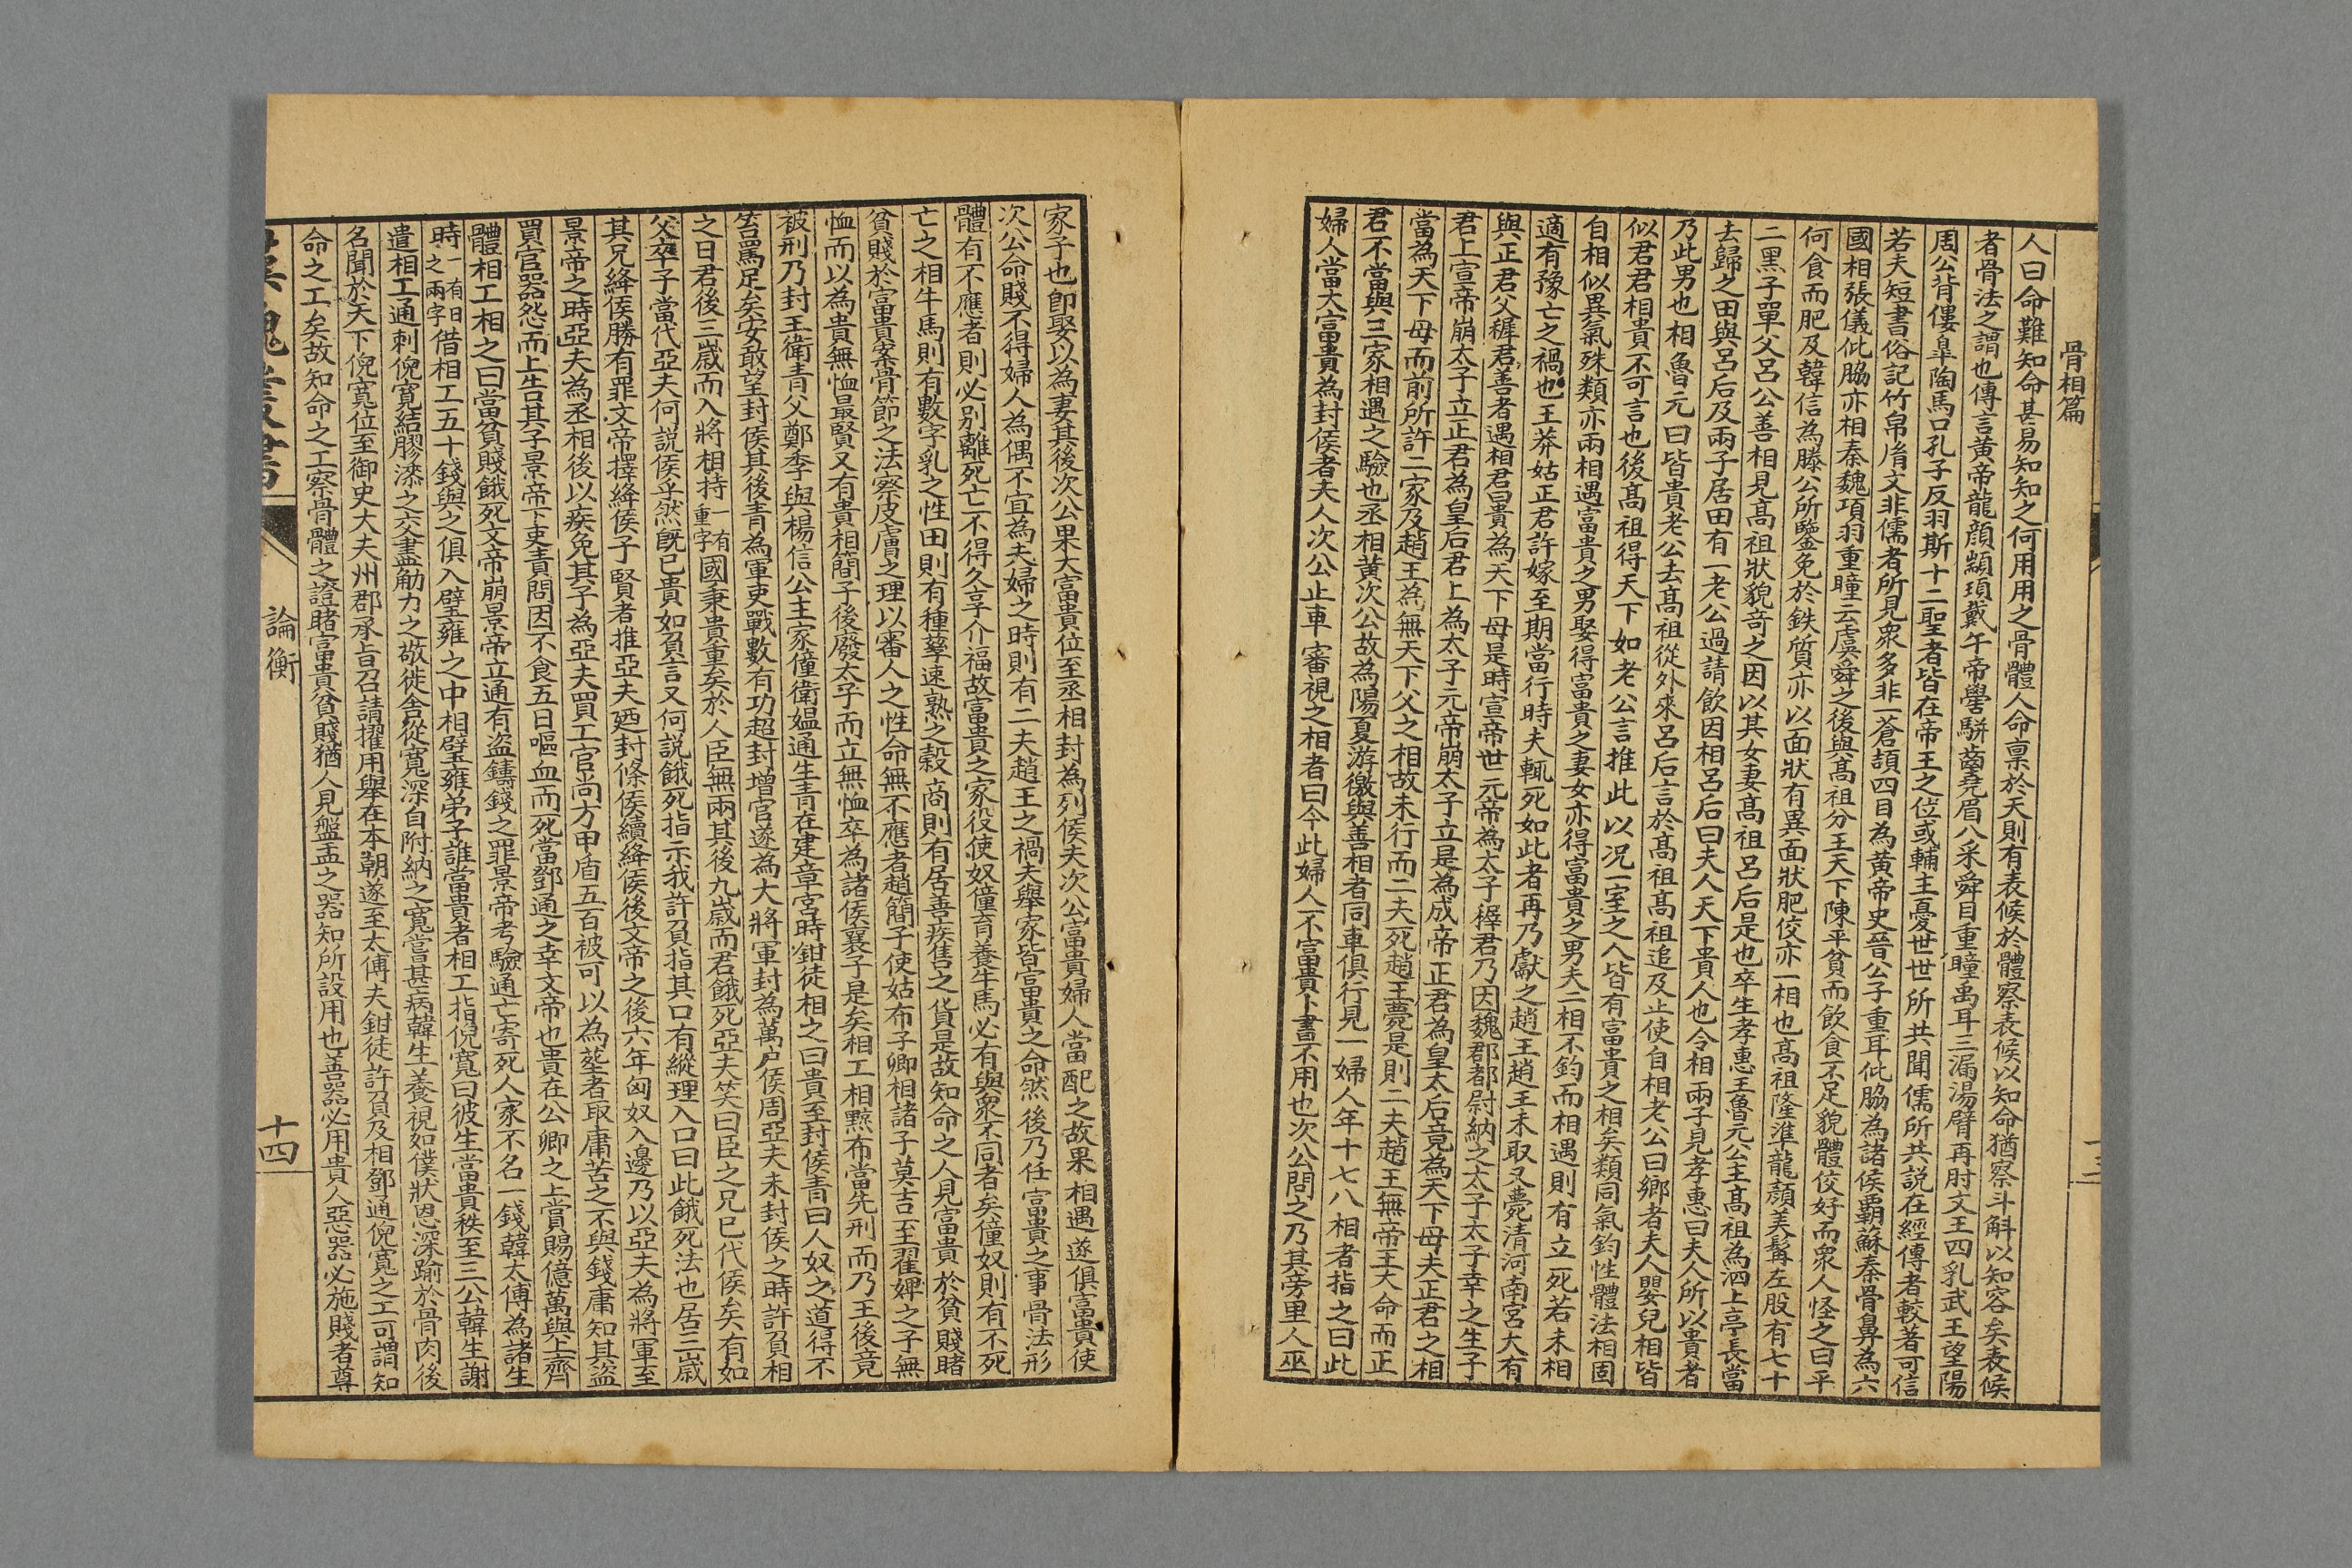 骨相篇
人曰命難知命甚易知知之何用用之骨體人命禀於天則有表候於體察表候以知命猶察斗斛以知容矣表候
者骨法之謂也傳言黄帝龍顔顓頊戴午帝嚳騈齒堯眉八采舜目重瞳禹耳三漏湯臂再肘文王四乳武王望陽
周公背僂皐陶馬口孔子反羽斯十二聖者皆在帝王之位或輔主憂世世所共聞儒所共説在經傳者較著可信
若夫短書俗記竹帛胤文非儒者所見衆多非一蒼頡四目為黄帝史晉公子重耳仳脇為諸侯覇蘇秦骨鼻為六
國相張儀仳脇亦相秦魏項羽重瞳云虞舜之後與髙祖分王天下陳平貧而飲食不足貌體佼好而衆人怪之曰平
何食而肥及韓信為滕公所鑒免於鈇質亦以面狀有異面狀肥佼亦一相也髙祖隆準龍顔美鬚左股有七十
二黑子單父吕公善相見髙祖狀貌竒之因以其女妻髙祖吕后是也卒生孝惠王魯元公主髙祖為泗上亭長當
去歸之田與吕后及兩子居田有一老公過請飲因相吕后曰夫人天下貴人也令相兩子見孝惠曰夫人所以貴者
乃此男也相魯元曰皆貴老公去髙祖從外來吕后言於髙祖髙祖追及止使自相老公曰鄉者夫人嬰兒相皆
似君君相貴不可言也後髙祖得天下如老公言推此以况一室之人皆有富貴之相矣類同氣鈞性體法相固
自相似異氣殊類亦兩相遇富貴之男娶得富貴之妻女亦得富貴之男夫二相不鈞而相遇則有立死若未相
適有豫亡之禍也王莽姑正君許嫁至期當行時夫輒死如此者再乃獻之趙王趙王未取又薨清河南宫大有
與正君父穉君善者遇相君曰貴為天下母是時宣帝世元帝為太子穉君乃因魏郡都尉納之太子太子幸之生子
君上宣帝崩太子立正君為皇后君上為太子元帝崩太子立是為成帝正君為皇太后竟為天下母夫正君之相
當為天下母而前所許二家及趙王為無天下父之相故未行而二夫死趙王薨是則二夫趙王無帝王大命而正
君不當與三家相遇之驗也丞相黄次公故為陽夏游徼與善相者同車俱行見一婦人年十七八相者指之曰此
婦人當大富貴為封侯者夫人次公止車審視之相者曰今此婦人不富貴卜書不用也次公問之乃其旁里人巫
家子也卽娶以為妻其後次公果大富貴位至丞相封為列侯夫次公富貴婦人當配之故果相遇遂俱富貴使
次公命賤不得婦人為偶不宜為夫婦之時則有二夫趙王之禍夫舉家皆富貴之命然後乃任富貴之事骨法形
體有不應者則必别離死亡不得久享介福故富貴之家役使奴僮育養牛馬必有與衆不同者矣僮奴則有不死
亡之相牛馬則有數字乳之性田則有種孳速熟之穀商則有居善疾售之貨是故知命之人見富貴於貧賤睹
貧賤於富貴案骨節之法察皮膚之理以審人之性命無不應者趙簡子使姑布子卿相諸子莫吉至翟婢之子無
恤而以為貴無恤最賢又有貴相簡子後廢太子而立無恤卒為諸侯襄子是矣相工相黥布當先刑而乃王後竟
被刑乃封王衛青父鄭季與楊信公主家僮衛媪通生青在建章宫時鉗徒相之曰貴至封侯青曰人奴之道得不
笞罵足矣安敢望封侯其後青為軍吏戰數有功超封增官遂為大將軍封為萬户侯周亞夫未封侯之時許負相
之曰君後三嵗而入將相持一有重字國秉貴重矣於人臣無兩其後九嵗而君餓死亞夫笑曰臣之兄已代侯矣有如
父卒子當代亞夫何説侯乎然旣已貴如負言又何説餓死指示我許負指其口有縱理入口曰此餓死法也居三嵗
其兄絳侯勝有罪文帝擇絳侯子賢者推亞夫廼封條侯續絳侯後文帝之後六年匈奴入邊乃以亞夫為將軍至
景帝之時亞夫為丞相後以疾免其子為亞夫買工官尚方甲盾五百被可以為葬者取庸苦之不與錢庸知其盗
買官器怨而上告其子景帝下吏責問因不食五日嘔血而死當鄧通之幸文帝也貴在公卿之上賞賜億萬與上齊
體相工相之曰當貧賤餓死文帝崩景帝立通有盗鑄錢之罪景帝考驗通亡寄死人家不名一錢韓太傅為諸生
時一有日之兩字借相工五十錢與之俱入璧雍之中相璧雍弟子誰當貴者相工指倪寛曰彼生當貴秩至三公韓生謝
遣相工通刺倪寛結膠漆之交盡筋力之敬徙舍從寛深自附納之寛嘗甚病韓生養視如僕狀恩深踰於骨肉後
名聞於天下倪寛位至御史大夫州郡承旨召請擢用舉在本朝遂至太傅夫鉗徒許負及相鄧通倪寛之工可謂知
命之工矣故知命之工察骨體之證睹富貴貧賤猶人見盤盂之器知所設用也善器必用貴人惡器必施賤者尊
論衡
十四